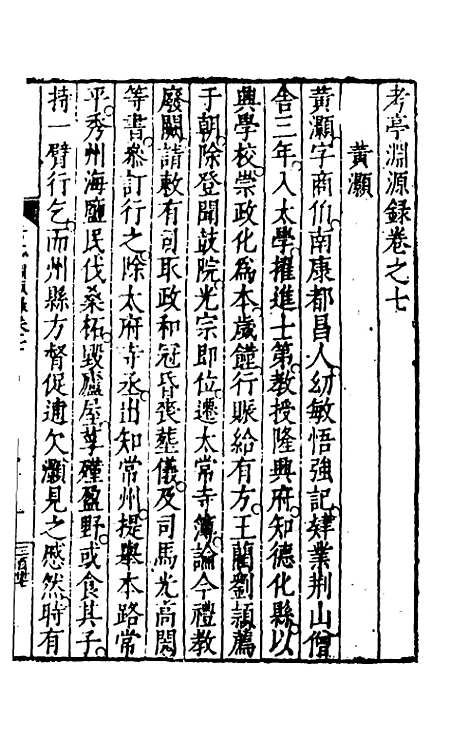 考亭淵源錄卷之七
黃灝
黃灝字商伯南康都昌人幼敏悟強記肄業荆山僧
舍三年入太學擢進士第教授隆興府知德化縣以
興學校崇政化爲本歲饉行賑給有方王藺劉頴薦
于朝除登聞鼓院光宗即位遷太常寺簿論今禮教
廢闕請敕有司取政和冠昏喪塟儀及司馬光高閌
等書叅訂行之除太府寺丞出知常州提舉本路常
平秀州海鹽民伐桑柘毀廬屋莩殣盈野或食其子
持一臂行乞而州縣方督促逋欠灝見之慼然時有